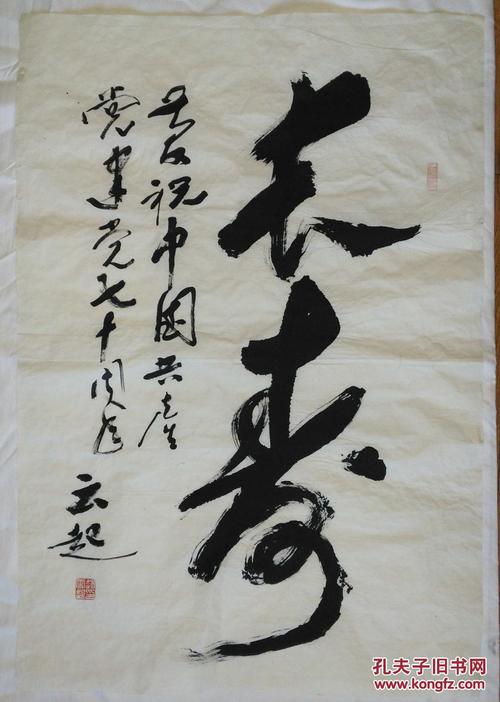 长寿
庆祝中国共产
党建党七十周年
云起
孔夫子旧书网
www.kongfz.com